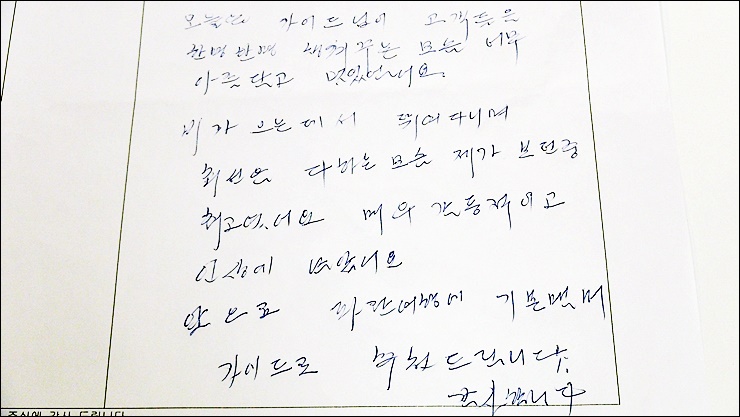 오늘은 가이드님이 고객들을
한명 한명 챙겨주는 모습 너무
아름답고 멋있었네요.
비가 오는데서 뛰어다니며
최선을 다하는 모습 제가 보던중
최고였네요 매우 감동적이고
인상에 남았네요
앞으로 파란여행에 기분맨
가이드로 추천드립니다.
감사합니다
주셔서 감사 드립니다